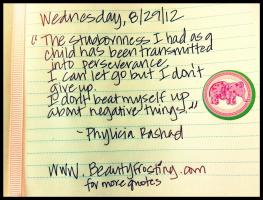 Wednesday, 8/29/12
"The stubbornness I had as a
child has been transmitted
into perseverance.
I can let go but I don't
give up.
I don't beat myself up
about negative things."
- Phylicia Rashad
www.BeautyFrosting.com
for more quotes